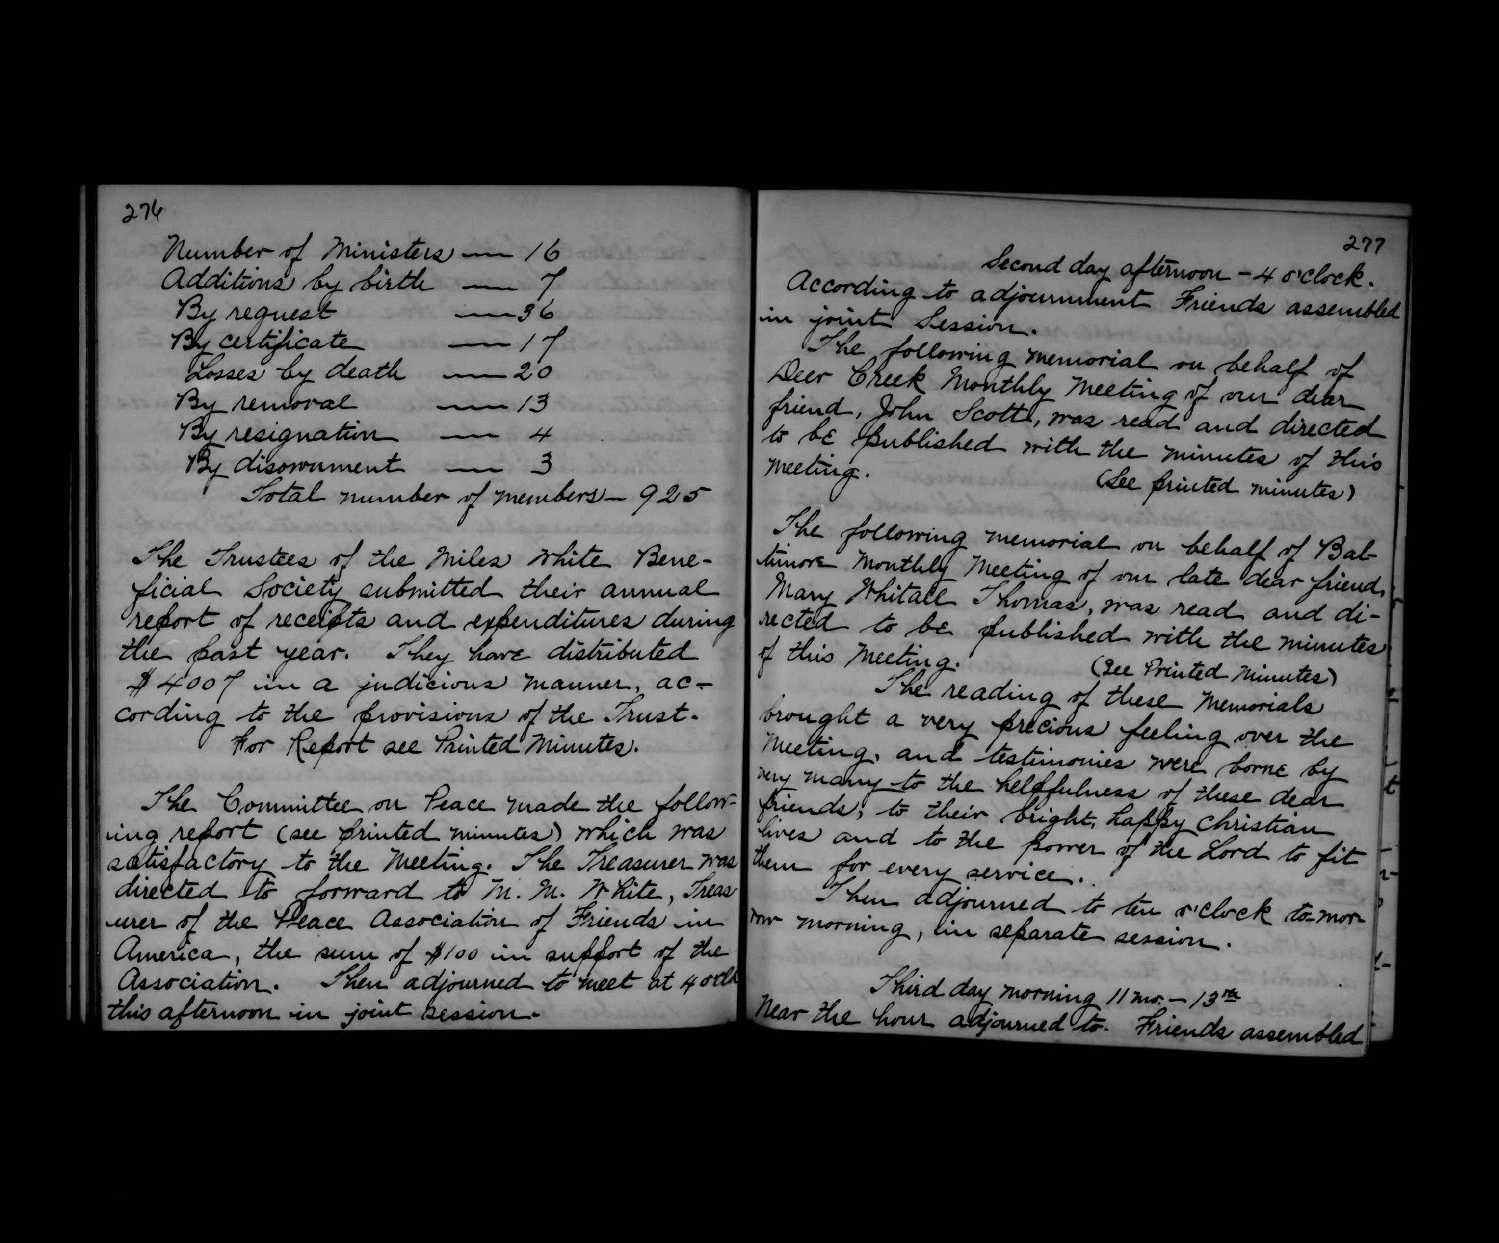 276
Number of Ministers — 16
Additions by birth — 7
By request — 36
By certificate — 17
Losses by death — 20
By removal — 13
By resignation — 4
By disownment — 3
Total number of members — 925
The Trustees of the Miles White Bene-
ficial Society submitted their annual
report of receipts and expenditures during
the past year. They have distributed
$4007 in a judicious manner, ac-
cording to the provisions of the Trust.
For Report see Printed Minutes.
The Committee on Peace made the follow-
ing report (see printed minutes) which was
satisfactory to the Meeting. The Treasurer was
directed to forward to M. M. White, Treas
urer of the Peace Association of Friends in
America, the sum of $100 in support of the
Association. Then adjourned to meet at 4 oclk
this afternoon in joint session.
277
Second day afternoon – 4 o'clock.
According to adjournment Friends assembled
in joint Session.
The following memorial on behalf of
Deer Creek Monthly Meeting of our dear
friend, John Scott, was read and directed
to be published with the minutes of this
Meeting. (See printed minutes)
The following memorial on behalf of Bal-
timore Monthly Meeting of our late dear friend,
Mary Whitall Thomas, was read and di-
rected to be published with the minutes
of this Meeting. (See Printed Minutes)
The reading of these Memorials
brought a very precious feeling over the
Meeting, and testimonies were borne by
very many to the helpfulness of these dear
friends, to their bright, happy Christian
lives and to the power of the Lord to fit
them for every service.
Then adjourned to ten o'clock to-mor-
row morning, in separate session.
Third day morning 11 mo. – 13th
Near the hour adjourned to. Friends assembled